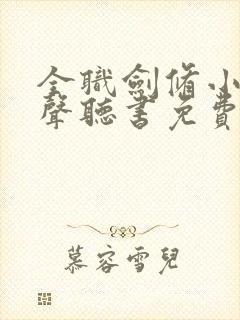 全職劍脩小
聲聽書免費
慕容雪兒